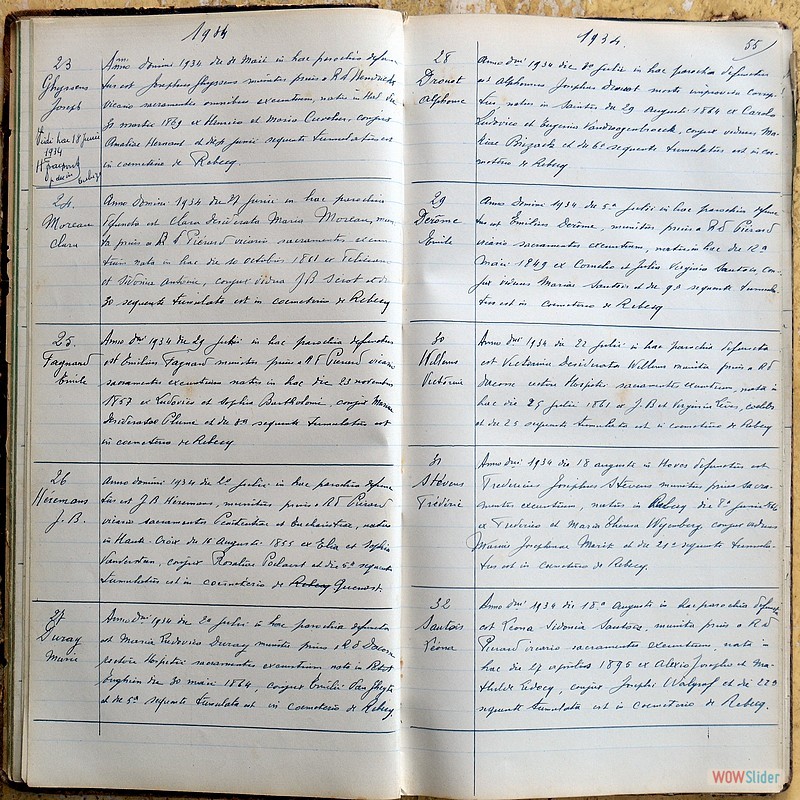 1934
23
Ghyssens
Joseph
Anno Domini 1934 die Maii in hac parochia defunc
tus est Josephus Ghyssens munitus prius a Rd
vicario sacramentis omnibus exeuntium, natus in
martii 1869 ex Henrico et Maria Cuvelier, conjux
Amaliae Hernaut et die junii sequente tumulatus est
in coemeterio de Rebecq.
Vidi hac 18 Junii
1934
24.
Moreau
Clara
Anno Domini 1934 die 27 junii in hac parochia
defuncta est Clara Desiderata Maria Moreau, muni
ta prius a R d Pierard vicario sacramentis exeun
tium nata in hac die 10 octobris 1861 ex Feliciano
et Sidonia Antoine, conjux vidua J B Sirot et die
30 sequente tumulata est in coemeterio de Rebecq
25.
Fagnard
Emile
Anno Dni 1934 die 29 julii in hac parochia defunctus
est Emilius Fagnard munitus prius a Rd Pierard vicario
sacramentis exeuntium natus in hac die 23 novembris
1857 ex Ludovico et Sophia Bartholomé, conjux Mariae
Desideratae Plume et die sequente tumulatus est
in coemeterio de Rebecq
26
Héremans
J. B.
Anno Domini 1934 die 2a julii in hac parochia defunc
tus est J. B. Héremans, munitus prius a Rd Pierard
vicario sacramentis Poenitentiae et Eucharistiae, natus
in Haute-Croix die 15 Augusti 1855 ex Elia et Sophia
Vanderstan, conjux Rosaliae Poelaert et die 5a sequente
tumulatus est in coemeterio de Rebecq Quenast.
27
Duray
Marie
Anno Dni 1934 die 2a julii in hac parochia defuncta
est Maria Ludovica Duray munita prius a R d Dacom
rectore Hospitii sacramentis exeuntium nata in
die 30 maii 1864, conjux Emilii Van
et die 5a sequente tumulata est in coemeterio de Rebecq.
1934.
55
28
Drouet
Alphonse
Anno Dni 1934 die julii in hac parochia defunctus
est Alphonsus Josephus Drouet morte improvisa corrup
tus, natus in Saintes die 29 Augusti 1864 ex Carolo
Ludovico et Eugenia conjux viduus Ma
riae Brizack et die 6a sequente tumulatus est in coe
meterio de Rebecq
29
Derôme
Emile
Anno Domini 1934 die 5a julii in hac parochia defunc
tus est Emilius Derôme, munitus prius a Rd Pierard
vicario sacramentis exeuntium, natus in hac die 12a
Maii 1849 ex Cornelio et Julia Virginia Sautois, con
jux viduus Mariae Sautois et die 9a sequente tumula
tus est in coemeterio de Rebecq
30
Willems
Victorine
Anno Dni 1934 die 22 julii in hac parochia defuncta
est Victorina Desiderata Willems munita prius a Rd
Dacom rectore Hospitii sacramentis exeuntium, nata in
hac die 25 julii 1861 ex J. B et Virginia coelebs
et die 25 sequente tumulata est in coemeterio de Rebecq
31
Stévens
Frédéric
Anno Dni 1934 die 18 augusti in Hoves defunctus est
Fredericus Josephus Stevens munitus prius sacra
mentis exeuntium, natus in Rebecq die junii
ex Frederico et Maria Theresa Wynsberg, conjux viduus
Mariae Josephinae Marik et die 21a sequente tumula
tus est in coemeterio de Rebecq.
32
Sautois
Léona
Anno Dni 1934 die 18a augusti in hac parochia defuncta
est Leona Sidonia Sautois, munita prius a Rd
Pierard vicario sacramentis exeuntium, nata in
hac die 27 aprilis 1895 ex Alexio Josepho et Ma
thilde Ledecq, conjux Josephi Walgraf et die 22a
sequente tumulata est in coemeterio de Rebecq.
WOWSlider